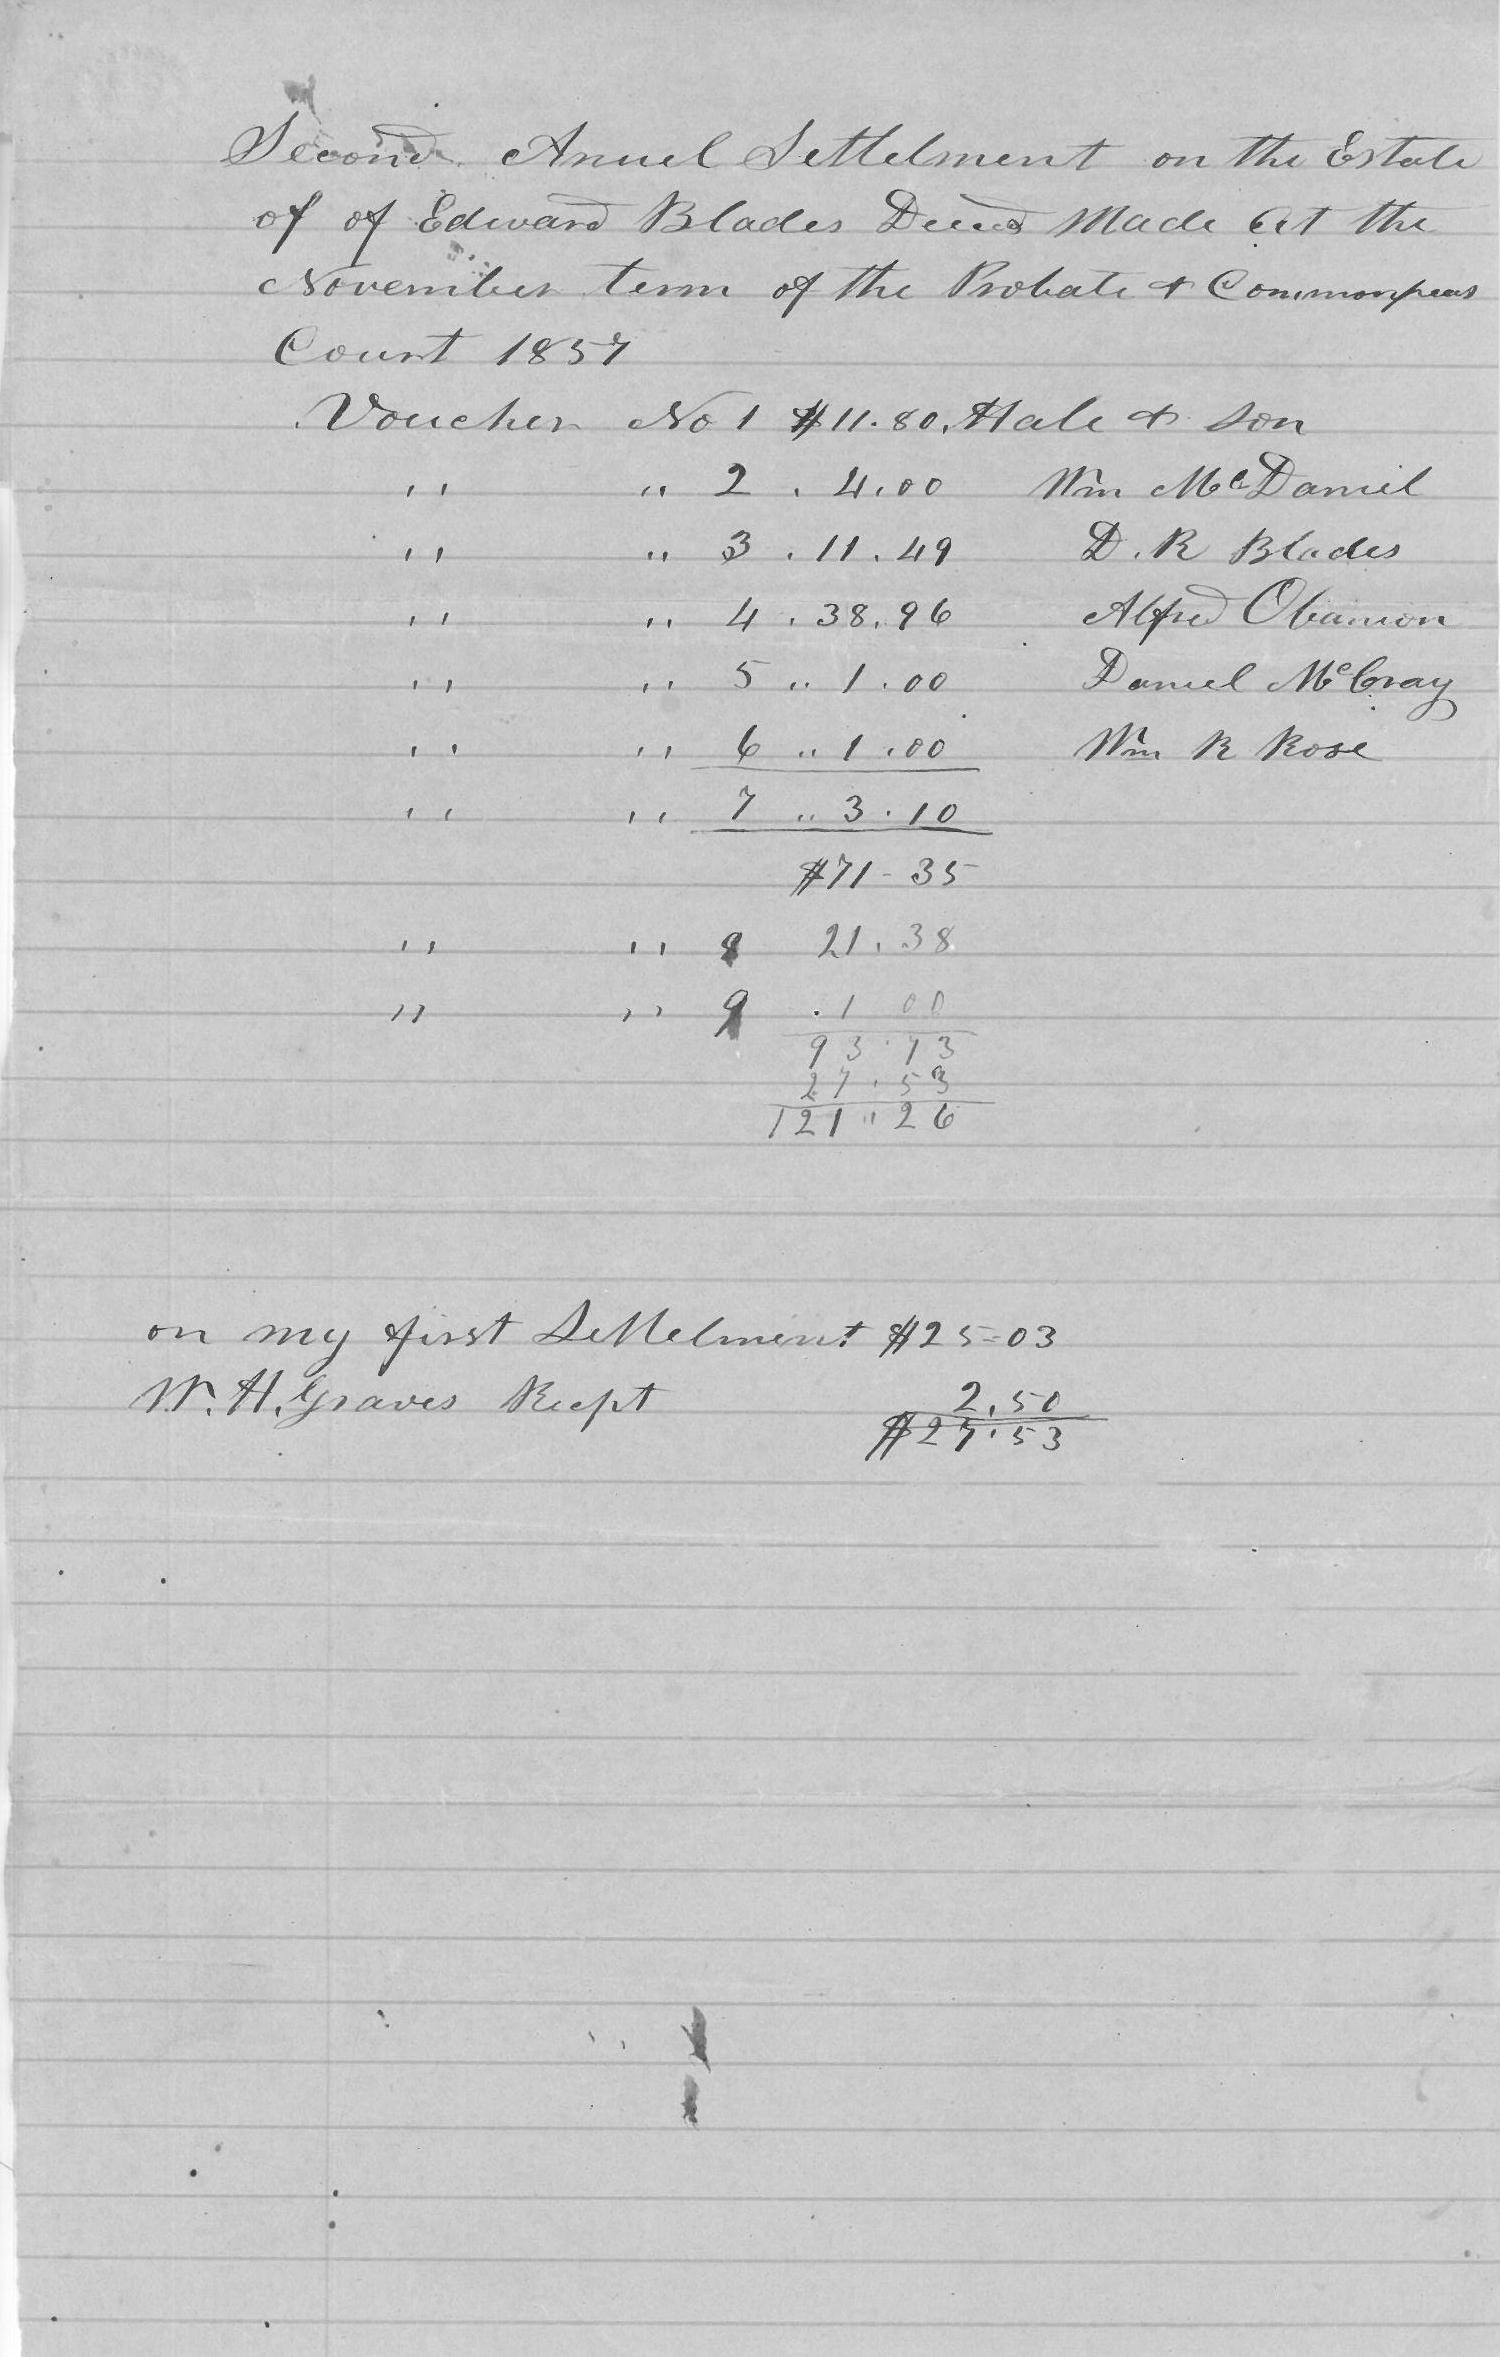 Second Anuel Settlement on the Estate
of of Edward Blades Decd Made At the
November term of the Probate & Commonpleas
Court 1857
Voucher No 1 $11.80. Hale & Son
" " 2 . 4.00 Wm McDaniel
" " 3 . 11.49 D. R Blades
" " 4 . 38.96 Alfred Obanion
" " 5 " 1.00 Daniel McCray
" " 6 " 1.00 Wm R Rose
" " 7 " 3.10
$71-35
" " 8 21.38
" " 9 .1 00
93.73
27.53
121"26
on my first Settelment $25=03
W. H. Graves Recpt 2.50
$27.53